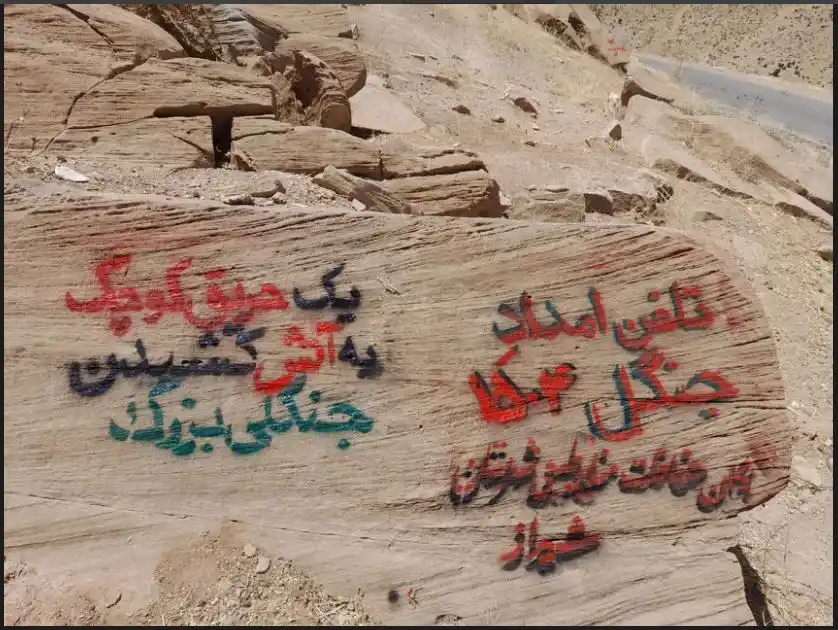 تلفن امداد
جنگل ۱۵۰۴
یگان حفاظت منابع طبیعی شهرستان
شیراز
یک حریق کوچک
به آتش کشیدن
جنگلی بزرگ